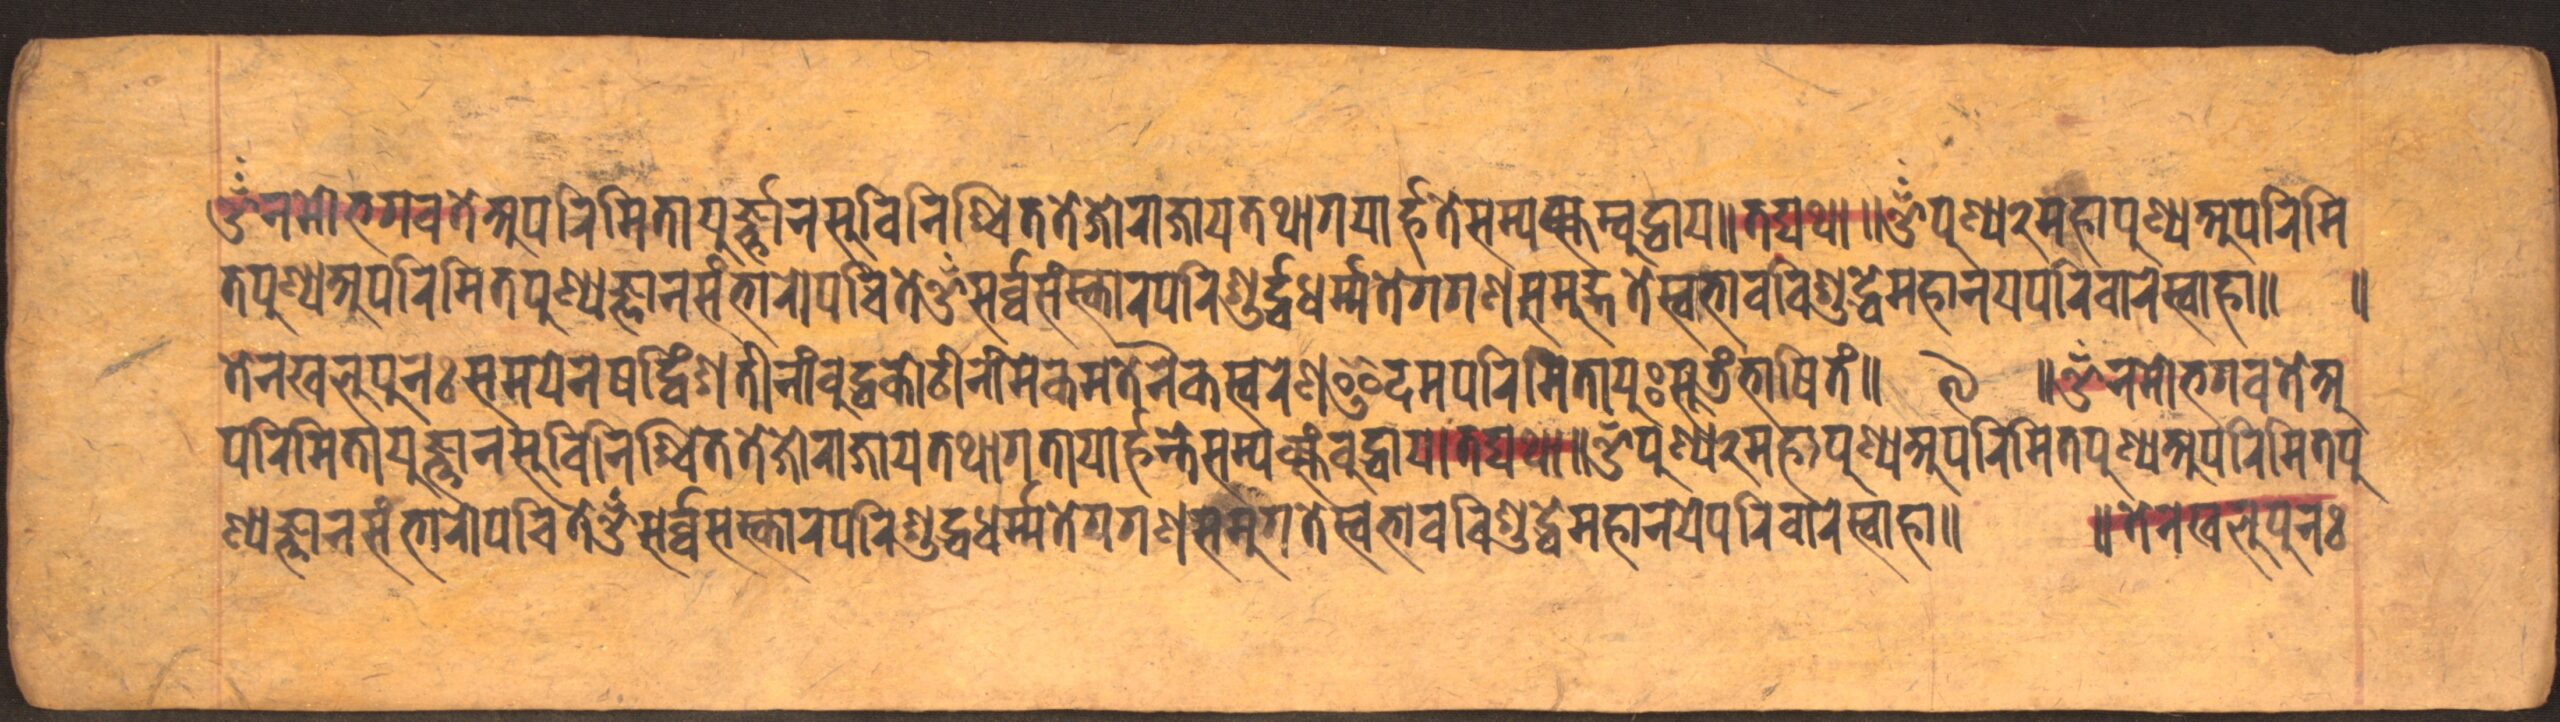 ॐनमोभगवतेअपरिमितायुर्ज्ञानसुविनिश्चिततेजोराजायतथागयार्हतेसम्यक्सम्बुद्धाय॥तद्यथा॥ॐपुण्य२महापुण्यअपरिमि
तपुण्यअपरिमितपुण्यज्ञानसंभारोपचितेॐसर्व्वसंस्कारपरिशुर्द्धधर्म्मतेगगणसमुद्गतेस्वभावविशुद्धेमहानयपरिवारेस्वाहा॥ ॥
तेनखलुपुनःसमयेनषड्विंशतीनांबुद्धकोटीनांमेकमतेनैकस्वरेणइदमपरिमितायुःसूत्रंभाषितं॥ ॥ॐनमोभगवतेअ
परिमितायुज्ञानसुविनिश्चिततेजोराजायतथागतायार्हन्तेसम्यक्संबुद्धाय।तद्यथा॥ॐपुण्य२महापुण्यअपरिमितपुण्यअपरिमितपु
ण्यज्ञानसंभारोपचितेॐसर्व्वसस्कारपरिशुद्धधर्म्मतेगगणसमुगतेस्वभावविशुद्धेमहानयेपरिवारेस्वाहा॥ ॥तेनखलुपुनः